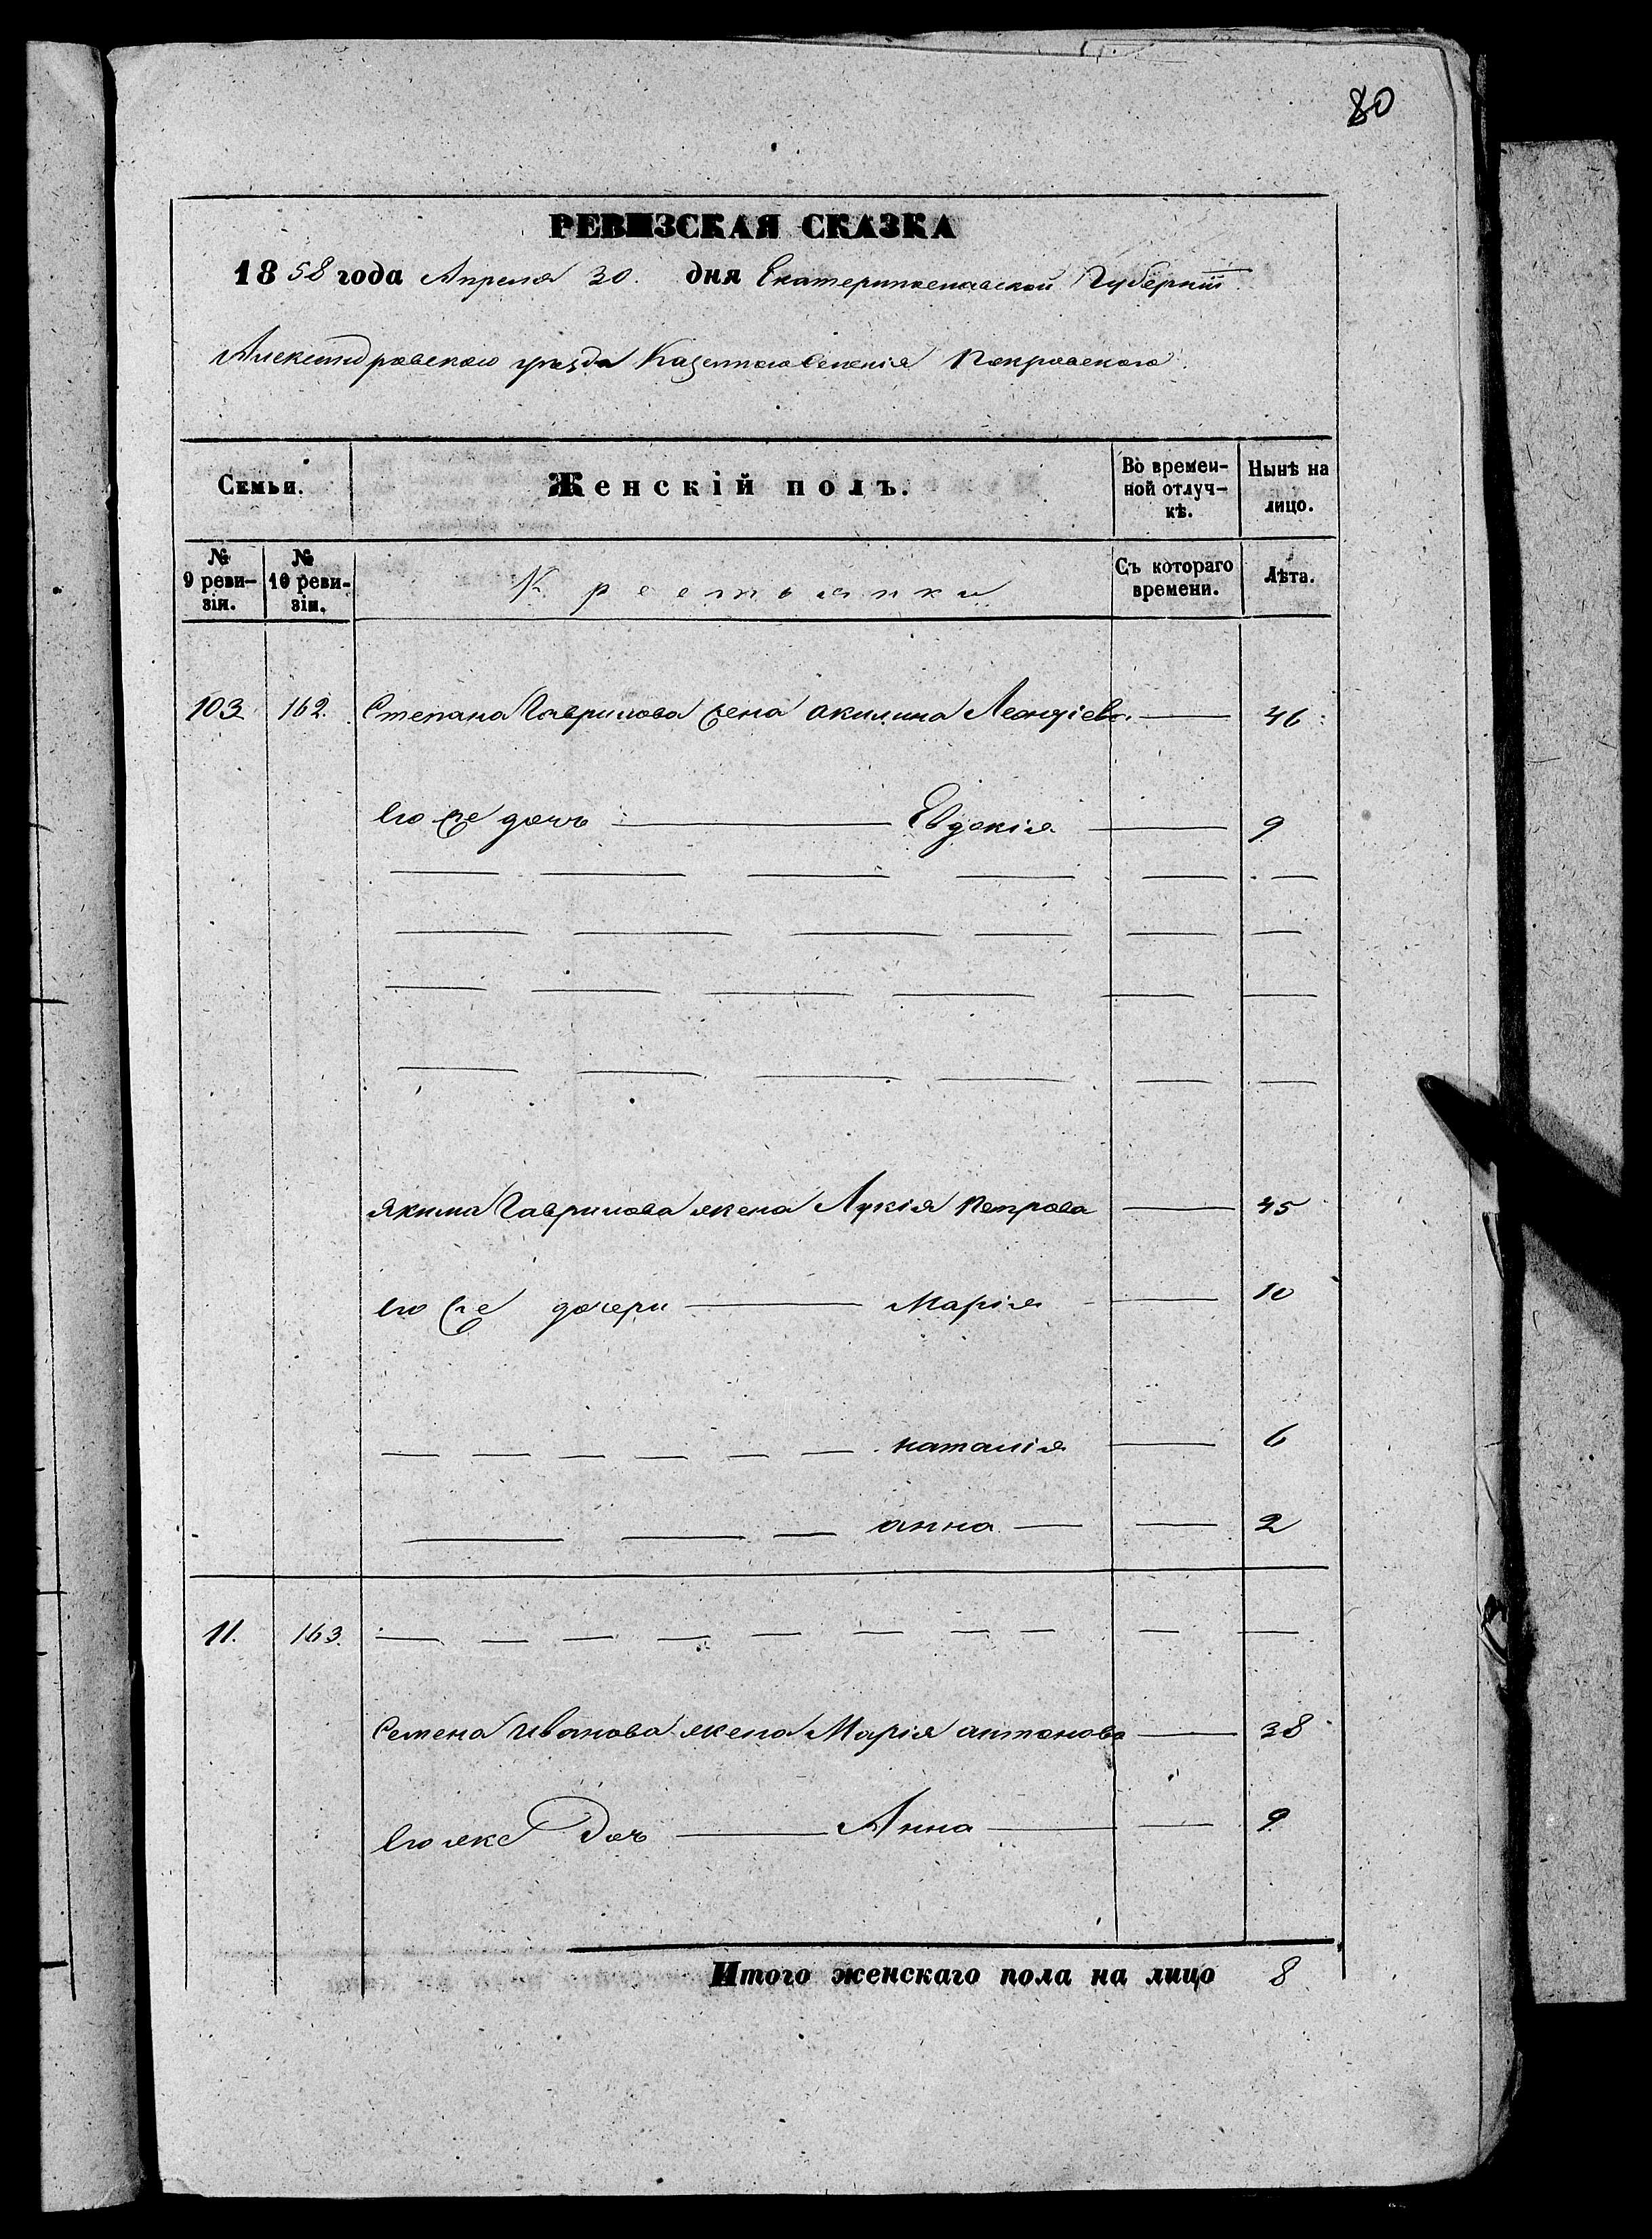 80
РЕВИЗСКАЯ СКАЗКА
1858 года Апреля 30. дня Екатеринославской Губерніи
Александровского уезда Казенного Селенія Покровского
Семьи. Женскій полъ. Во времен-ной отлуч-кѣ. Нынѣ на лицо.
№ 9 реви-зіи. № 10 реви-зіи. Крестьянки Съ котораго времени. Лѣта.
103 162. Степана Гаврилова жена акилина Леонтіева — 46
Его же дочь — Евдокія — 9
Якима Гаврилова жена Лукія Петрова — 45
Его же дочери — Марія — 10
— — — — — — наталія — 6
— — — анна — — 2
11. 163. — — — — — — — — — —
Семена Иванова жена Марія антонова — 38
Его же Доч — Анна — — 9
Итого женскаго пола на лицо 8